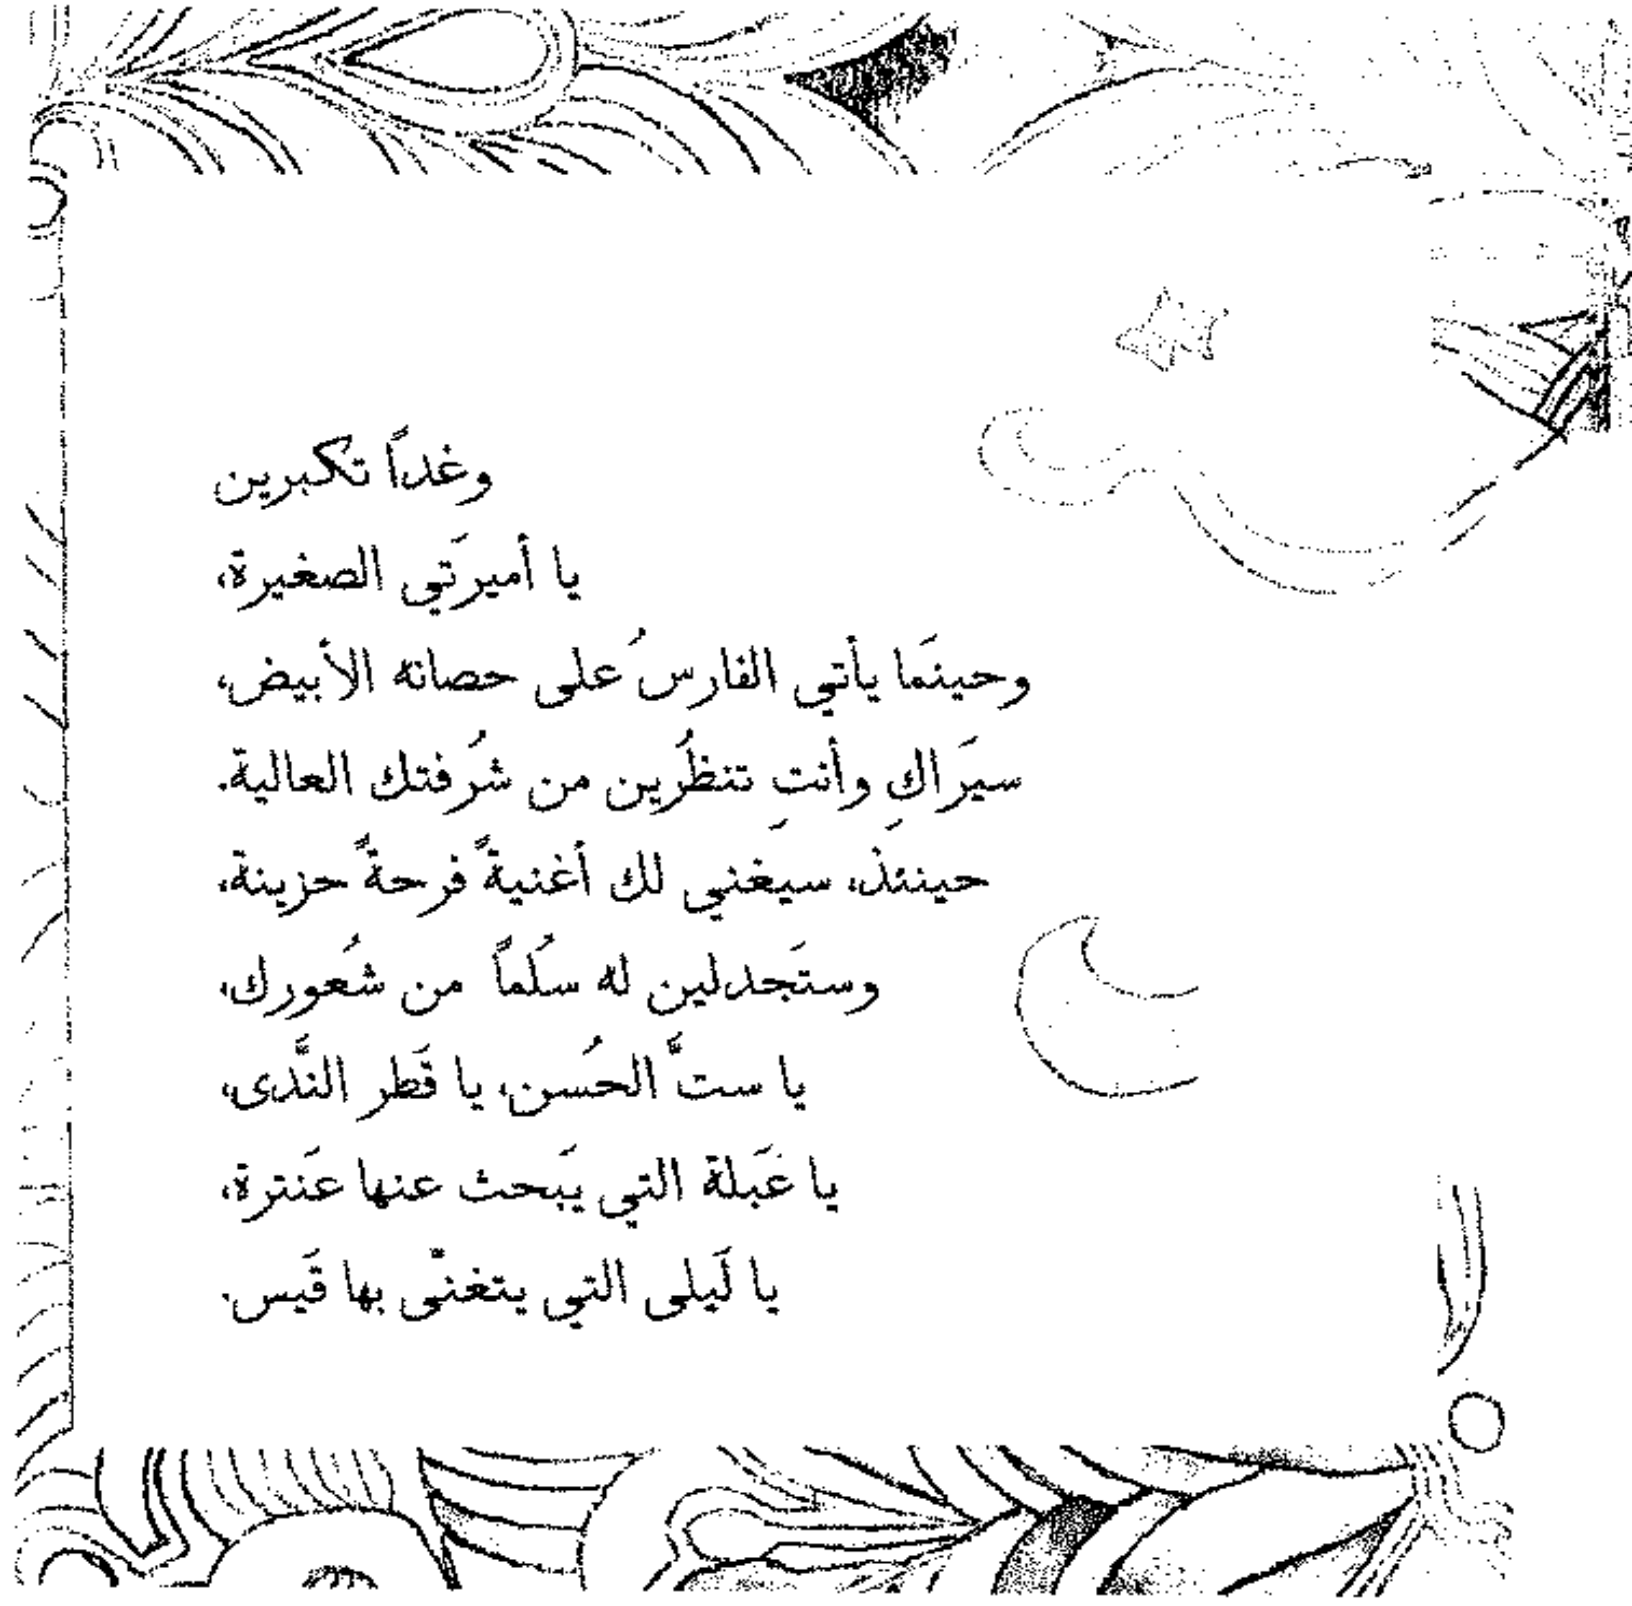 وغداً تكبرين
يا أميرَتي الصغيرة،
وحينمَا يأتي الفارسُ على حصانه الأبيض،
سيَراكِ وأنتِ تنظُرين من شُرفتك العالية.
حينئذٍ، سيَغني لك أغنيةً فرحةً حزينة،
وستَجدلين له سُلماً من شُعورك،
يا ستَّ الحُسن، يا قَطر النَّدى،
يا عَبلة التي يَبحث عنها عَنترة،
يا لَيلى التي يتغنّى بها قَيس.